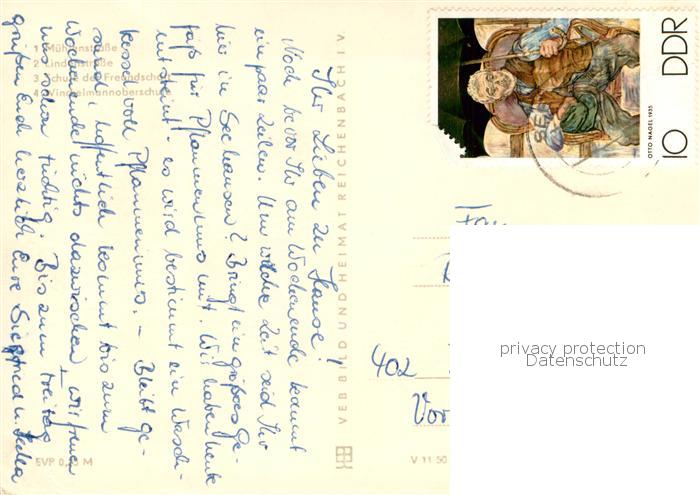 1 Mühlenstraße
2 Lindenstraße
3 Schule der Freundschaft
4 Winckelmannoberschule
Ihr Lieben zu Hause!
Noch bevor Ihr am Wochenende kommt
ein paar Zeilen. Um welche Zeit seid Ihr
hier in Seehausen? Bringt ein großes Ge-
fäß für Pflaumenmus mit. Wir haben heute
entsteint - es wird bestimmt ein Wasch-
kessel voll Pflaumenmus. - Bleibt ge-
sund, hoffentlich kommt bis zum
Wochenende nichts dazwischen, wir freuen
uns schon tüchtig. Bis zum Freitag
grüßen Euch herzlich Eure Siegfried u.
EVP 0,20 M
VEB BILD UND HEIMAT REICHENBACH I V
V 11 50
DDR
10
OTTO NAGEL 1935
SEE
402
Vor
privacy protection
Datenschutz